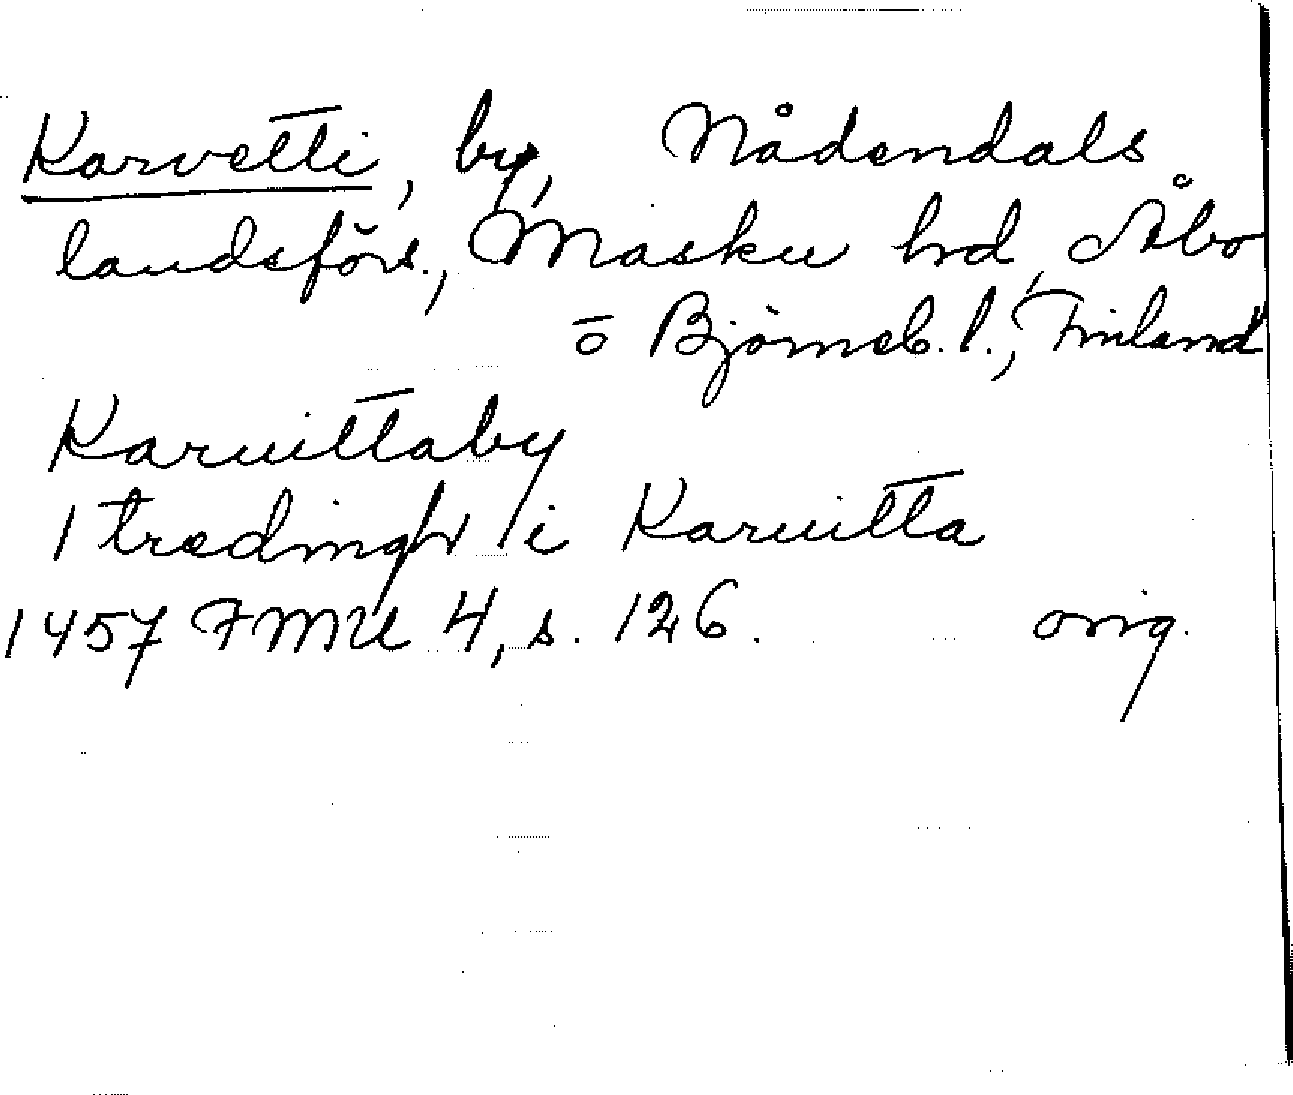 Karvetti, by, Nådendals
landsförs., Masku hd, Åbo
o Björneb. l., Finland
Karuittaby
1 trædingh i Karuitta
1457 FMU 4, s. 126. orig.